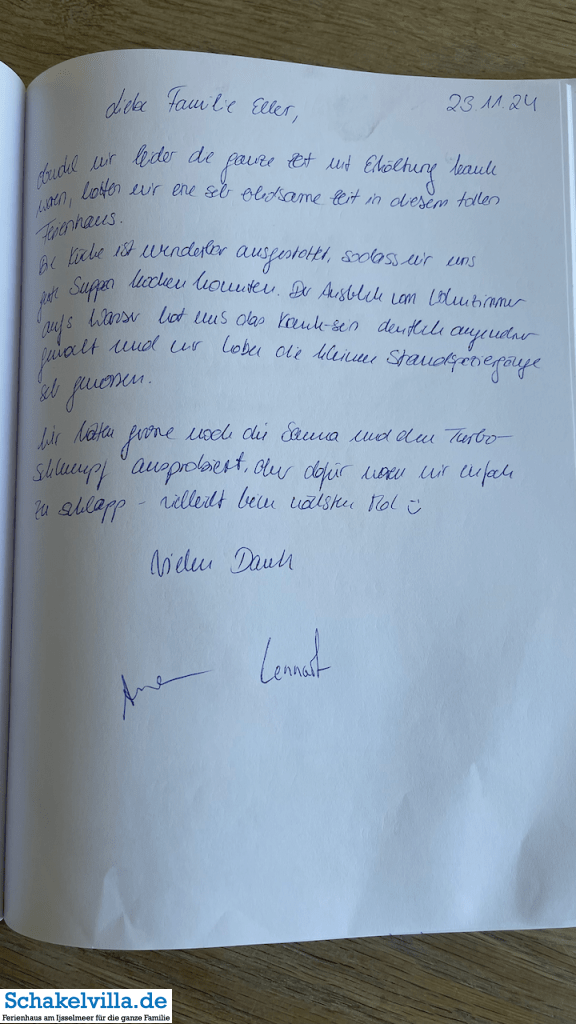 Liebe Familie Eller,
23.11.24
obwohl wir leider die ganze Zeit mit Erkältung krank
waren, hatten wir eine sehr erholsame Zeit in diesem tollen
Ferienhaus.
Die Küche ist wunderbar ausgestattet, sodass wir uns
gute Suppen kochen konnten. Der Ausblick vom Wohnzimmer
aufs Wasser hat uns das Krank-sein deutlich angenehmer
gemacht und wir haben die kleinen Strandspaziergänge
sehr genossen.
Wir hätten gerne noch die Sauna und den Turbo-
Schlumpf ausprobiert, aber dafür waren wir einfach
zu schlapp - vielleicht beim nächsten Mal
Vielen Dank
Lennart
Schakelvilla.de
Ferienhaus am Ijsselmeer für die ganze Familie